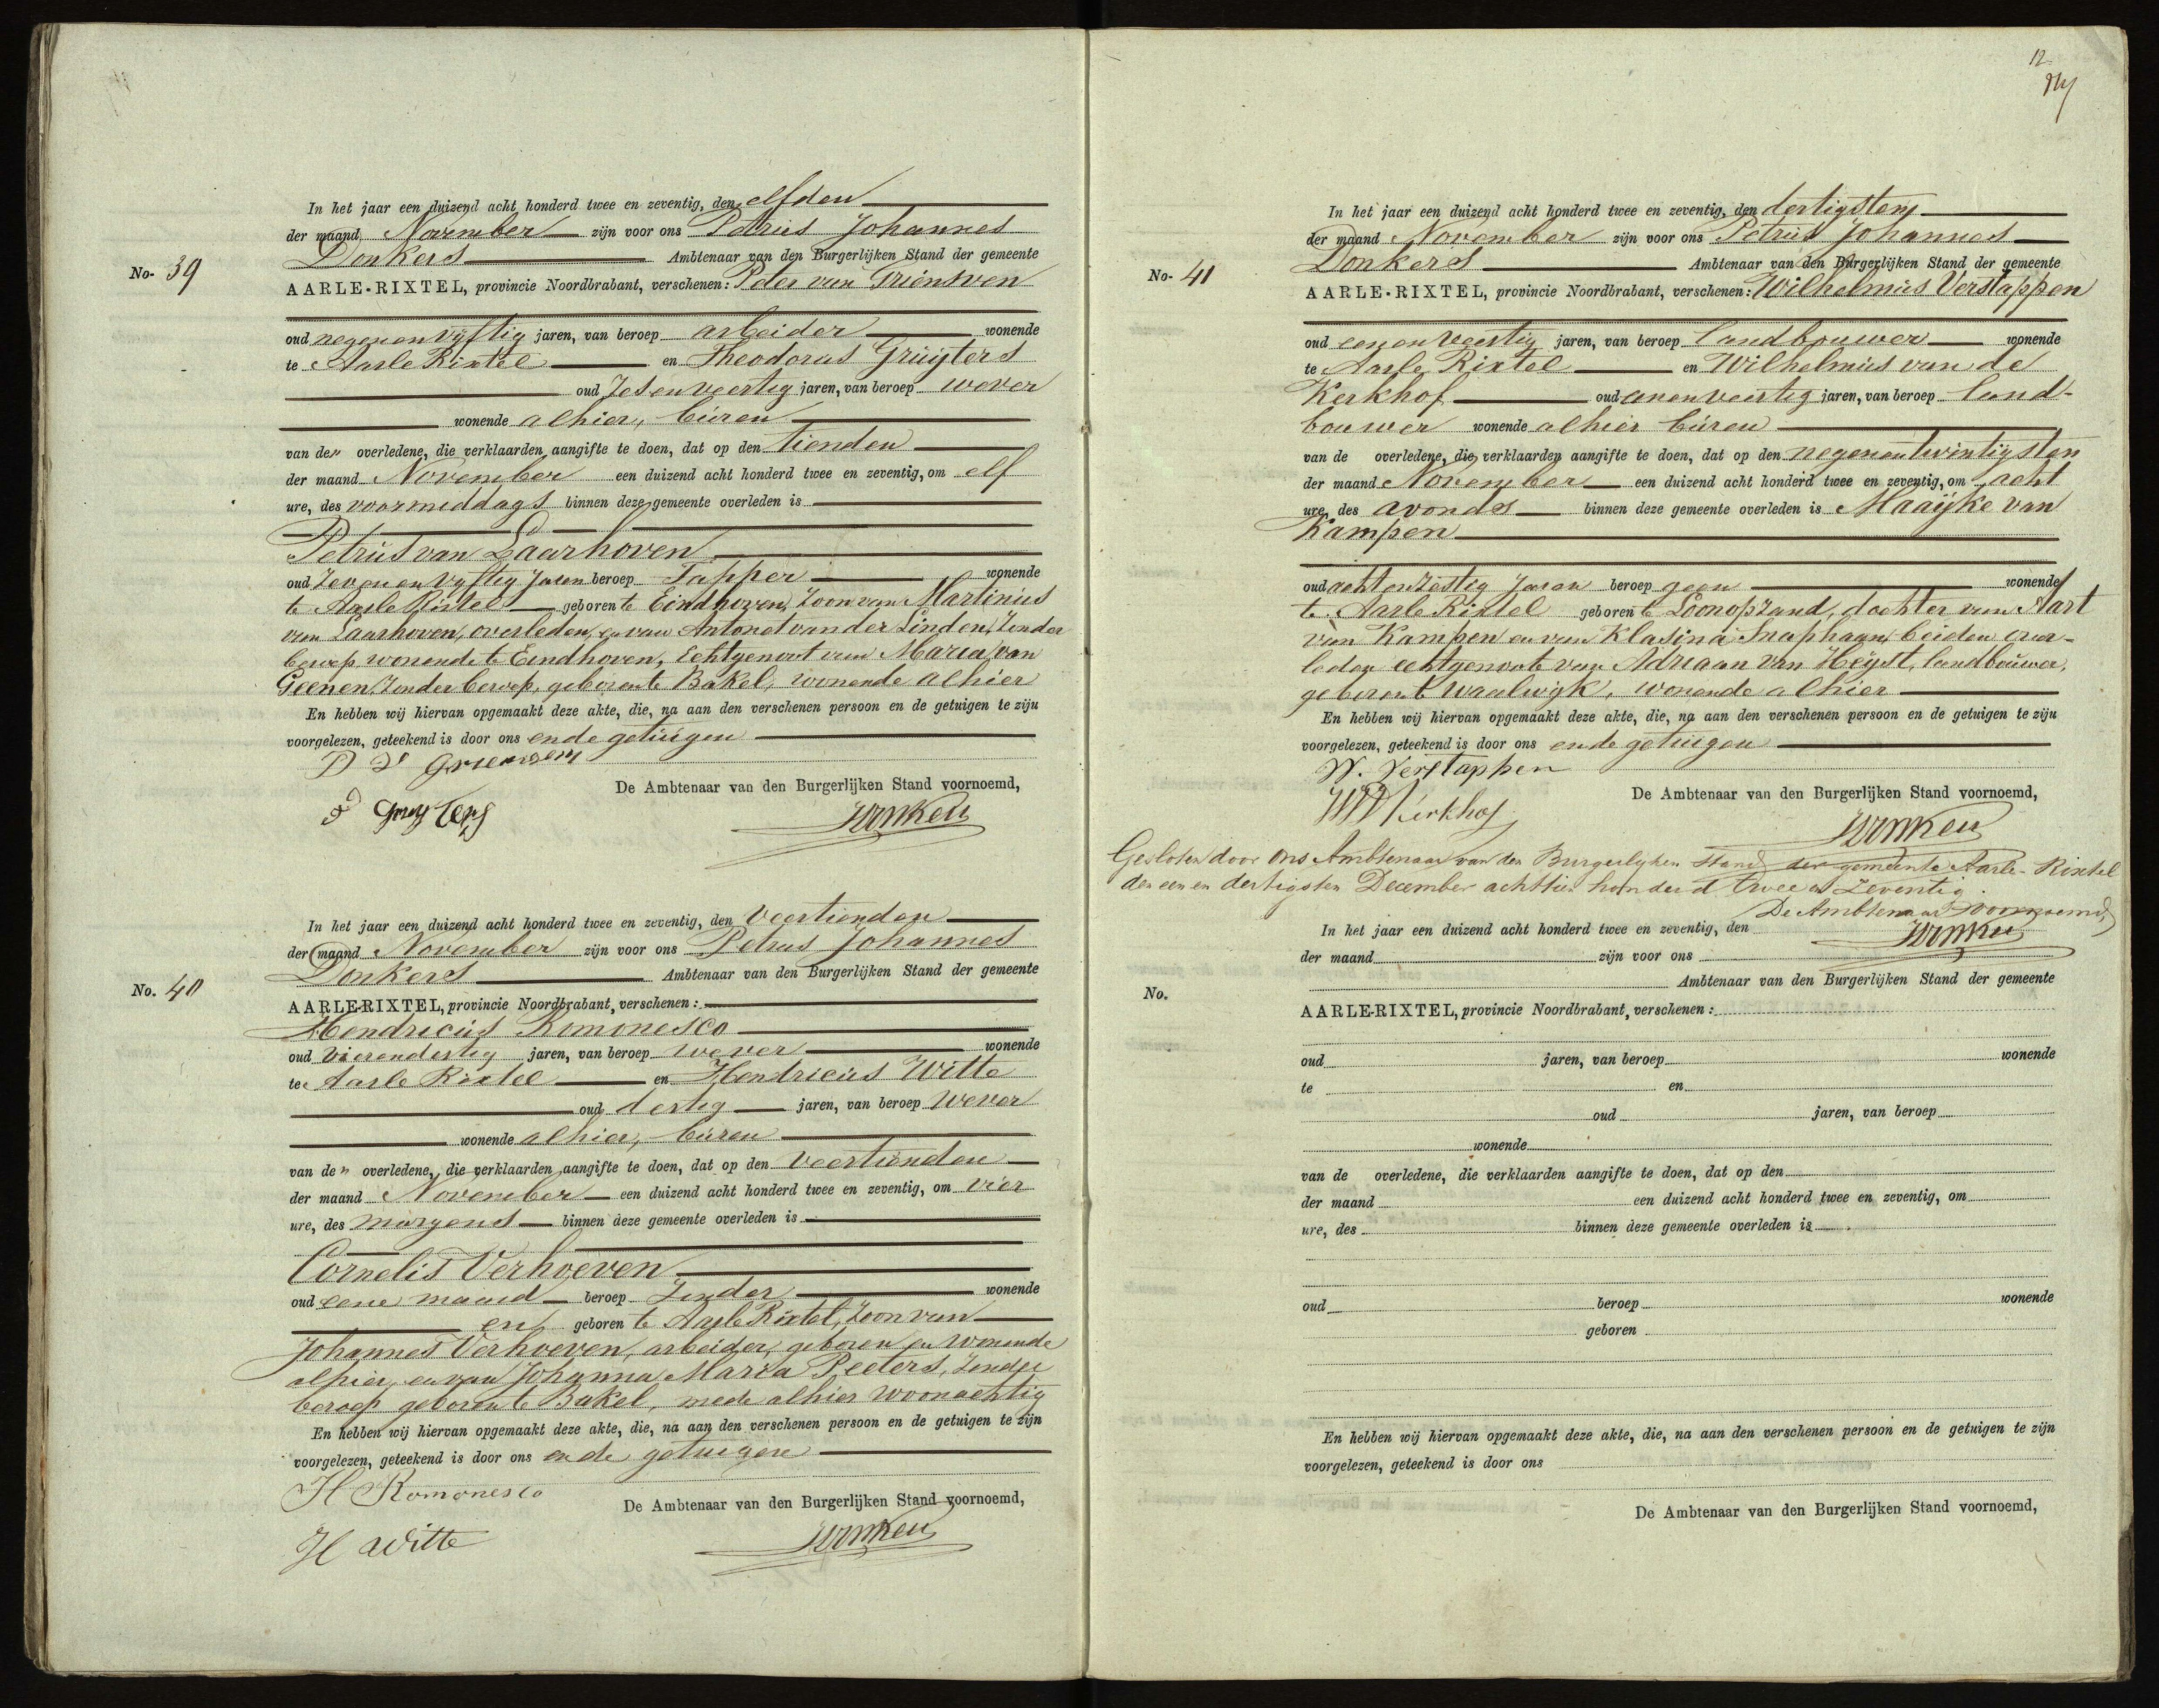 No. 39
In het jaar een duizend acht honderd twee en zeventig, den elfden
der maand November zijn voor ons Petrus Johannes
Donkers Ambtenaar van den Burgerlijken Stand der gemeente
AARLE-RIXTEL, provincie Noordbrabant, verschenen: Peter van Griensven
oud negenenvyftig jaren, van beroep arbeider wonende
te Aarle Rixtel en Theodorus Gruijters
oud Zesenveertig jaren, van beroep wever
wonende alhier, buren
van den overledene, die verklaarden aangifte te doen, dat op den tienden
der maand November een duizend acht honderd twee en zeventig, om elf
ure, des voormiddags binnen deze gemeente overleden is
Petrus van Laarhoven
oud Zevenenvyftig Jaren beroep Tapper wonende
te Aarle Rixtel geboren te Eindhoven, Zoon van Martinus
van Laarhoven, overleden, en van Antonet van der Linden, Zonder
beroep wonende te Eindhoven, Echtgenoot van Maria van
Geenen Zonder beroep, geboren te Bakel, wonende alhier
En hebben wij hiervan opgemaakt deze akte, die, na aan den verschenen persoon en de getuigen te zijn
voorgelezen, geteekend is door ons en de getuigen
P v Griensven
De Ambtenaar van den Burgerlijken Stand voornoemd,
Gruyters
Donkers
No. 40
In het jaar een duizend acht honderd twee en zeventig, den Veertienden
der maand November zijn voor ons Petrus Johannes
Donkers Ambtenaar van den Burgerlijken Stand der gemeente
AARLE-RIXTEL, provincie Noordbrabant, verschenen:
Hendricus Romonesco
oud Vierendertig jaren, van beroep wever wonende
te Aarle Rixtel en Hendricus Witte
oud dertig jaren, van beroep Wever
wonende alhier, buren
van den overledene, die verklaarden aangifte te doen, dat op den Veertienden
der maand November een duizend acht honderd twee en zeventig, om vier
ure, des morgens binnen deze gemeente overleden is
Cornelis Verhoeven
oud eene maand beroep Zonder wonende
en geboren te Aarle Rixtel, Zoon van
Johannes Verhoeven, arbeider, geboren en wonende
alhier, en van Johanna Maria Peeters, Zonder
beroep geboren te Bakel, mede alhier woonachtig
En hebben wij hiervan opgemaakt deze akte, die, na aan den verschenen persoon en de getuigen te zijn
voorgelezen, geteekend is door ons en de getuigen
H Romonesco
De Ambtenaar van den Burgerlijken Stand voornoemd,
H Witte
Donkers
12
No. 41
In het jaar een duizend acht honderd twee en zeventig, den dertigsten
der maand November zijn voor ons Petrus Johannes
Donkers Ambtenaar van den Burgerlijken Stand der gemeente
AARLE-RIXTEL, provincie Noordbrabant, verschenen: Wilhelmus Verstappen
oud eenenveertig jaren, van beroep landbouwer wonende
te Aarle Rixtel en Wilhelmus van de
Kerkhof oud eenenveertig jaren, van beroep land-
bouwer wonende alhier buren
van de overledene, die verklaarden aangifte te doen, dat op den negenentwintigsten
der maand November een duizend acht honderd twee en zeventig, om acht
ure, des avonds binnen deze gemeente overleden is Maaijke van
Kampen
oud achtenzestig Jaren beroep geen wonende
te Aarle Rixtel geboren te Loonopzand, dochter van Aart
van Kampen en van Klasina Snaphaan, beiden over-
leden echtgenoote van Adriaan van Heijst, landbouwer,
geboren te Waalwijk, wonende alhier
En hebben wij hiervan opgemaakt deze akte, die, na aan den verschenen persoon en de getuigen te zijn
voorgelezen, geteekend is door ons en de getuigen
W. Verstappen
De Ambtenaar van den Burgerlijken Stand voornoemd,
Kerkhof
Donkers
Gesloten door ons Ambtenaar van den Burgerlijken Stand der gemeente Aarle-Rixtel
den een en dertigsten December achttien honderd twee en zeventig.
De Ambtenaar voornoemd,
Donkers
No.
In het jaar een duizend acht honderd twee en zeventig, den
der maand zijn voor ons
Ambtenaar van den Burgerlijken Stand der gemeente
AARLE-RIXTEL, provincie Noordbrabant, verschenen:
oud jaren, van beroep wonende
te en
oud jaren, van beroep
wonende
van de overledene, die verklaarden aangifte te doen, dat op den
der maand een duizend acht honderd twee en zeventig, om
ure, des binnen deze gemeente overleden is
oud beroep wonende
geboren
En hebben wij hiervan opgemaakt deze akte, die, na aan den verschenen persoon en de getuigen te zijn
voorgelezen, geteekend is door ons
De Ambtenaar van den Burgerlijken Stand voornoemd,